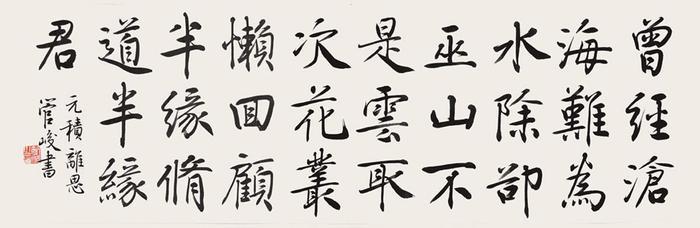 曾經滄
海難為
水除卻
巫山不
是雲取
次花叢
懶回顧
半緣脩
道半緣
君
元稹離思
管峻書